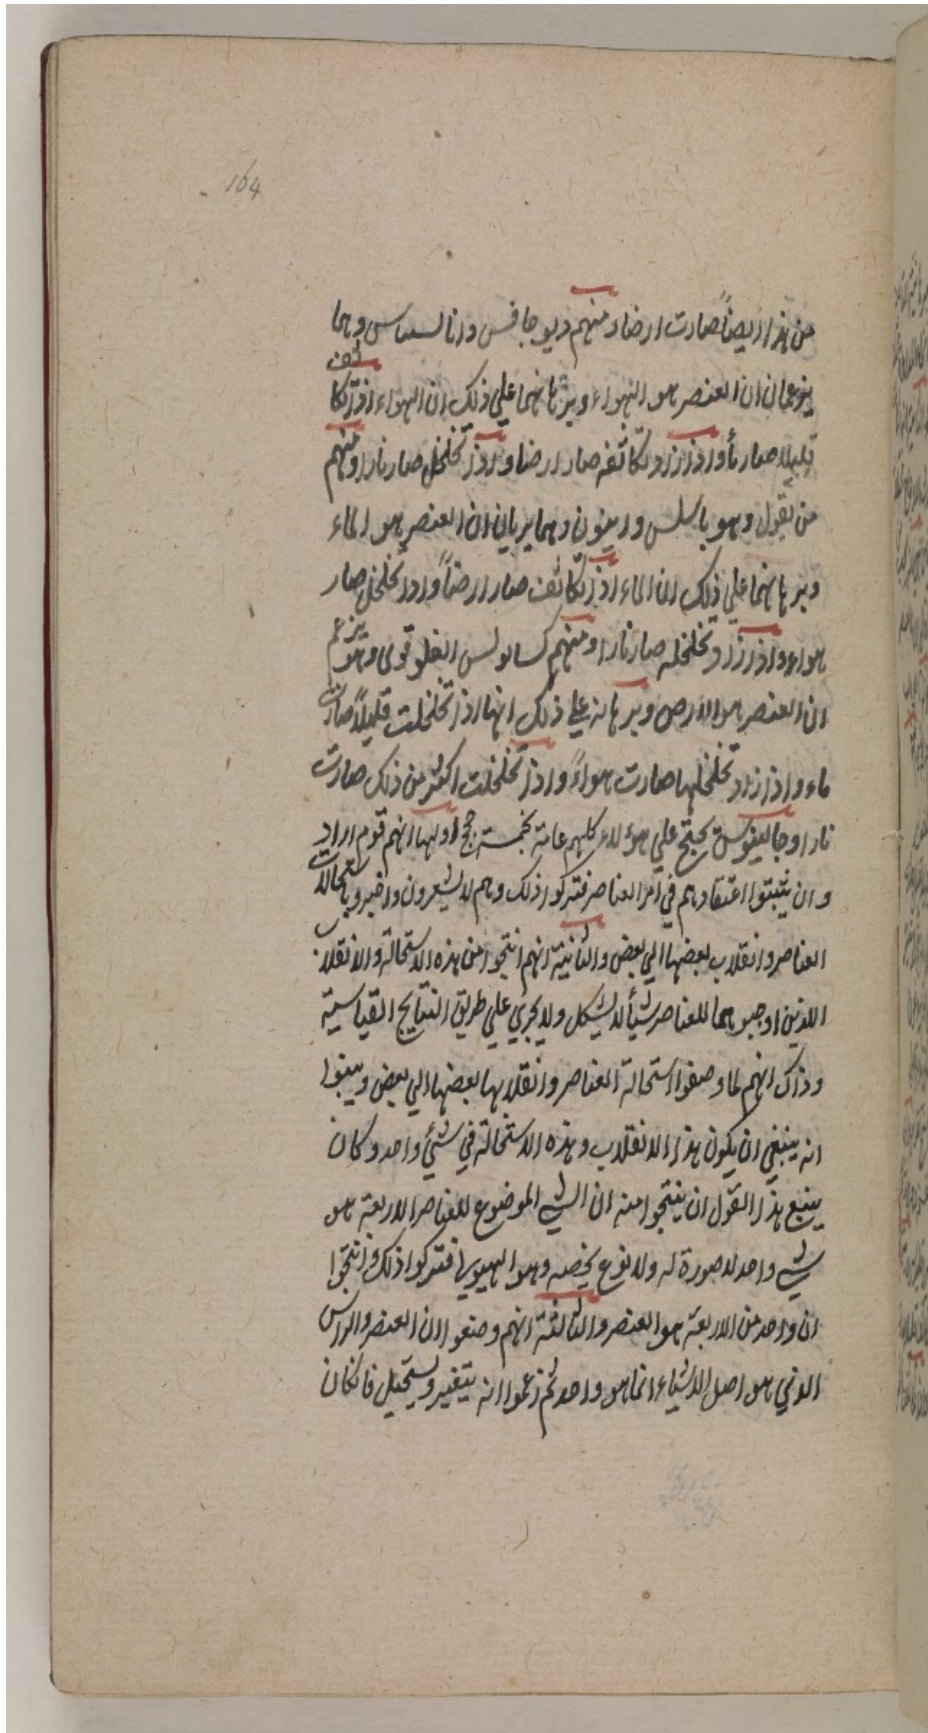 164
من هذا ايضاً صارت ارضا ومنهم ديوجانس وانا لسماس وهما
يزعمان ان العنصر هو الهواء وبرهانهما علي ذلك ان الهواء اذا تكاثف
قليلا صار مأ واذا زاد تكاثفه صار ارضا واذا تخلخل صار نارا ومنهم
من يقول وهو ثاليس وهما يريان ان العنصر هو الماء
وبرهانهما علي ذلك ان الماء اذا تكاثف صار ارضاً واذا تخلخل صار
هواء واذا زاد تخلخله صار نارا ومنهم وهو يزعم
ان العنصر هو الارض وبرهانه علي ذلك انها اذا تخلخلت قليلاً صارت
ماء واذا زاد تخلخلها صارت هواءً واذا تخلخلت اكثر من ذلك صارت
نارا وجالينوس يحتج علي هولاء كلهم عامة بخمسة حجج اولها انهم قوم اراد
وان يثبتوا اعتقادهم في امر العناصر فتركوا ذلك وهم لا يشعرون واخبروا باستحالات
العناصر وانقلاب بعضها الي بعض والثانية انهم انتجوا من هذه الاستحالة والانقلاب
اللذين اوجبوهما للعناصر شيأ لا يشكل ولا يجري علي طريق النتايج القياسية
وذاك انهم لما وصفوا استحالة العناصر وانقلابها بعضها الي بعض وبينوا
انه ينبغي ان يكون هذا الانقلاب وهذه الاستحالة في شئ واحد وكان
يتبع هذا القول ان ينتجوا منه ان الشي الموضوع للعناصر الاربعة هو
شي واحد لا صورة له ولا نوع يخصه وهو الهيولي فتركوا ذلك وانتجوا
ان واحد من الاربعة هو العنصر والثالثة انهم وضعوا ان العنصر والراس
الذي هو اصل الاشياء انما هو واحد ثم زعموا انه يتغير ويستحيل فان كان